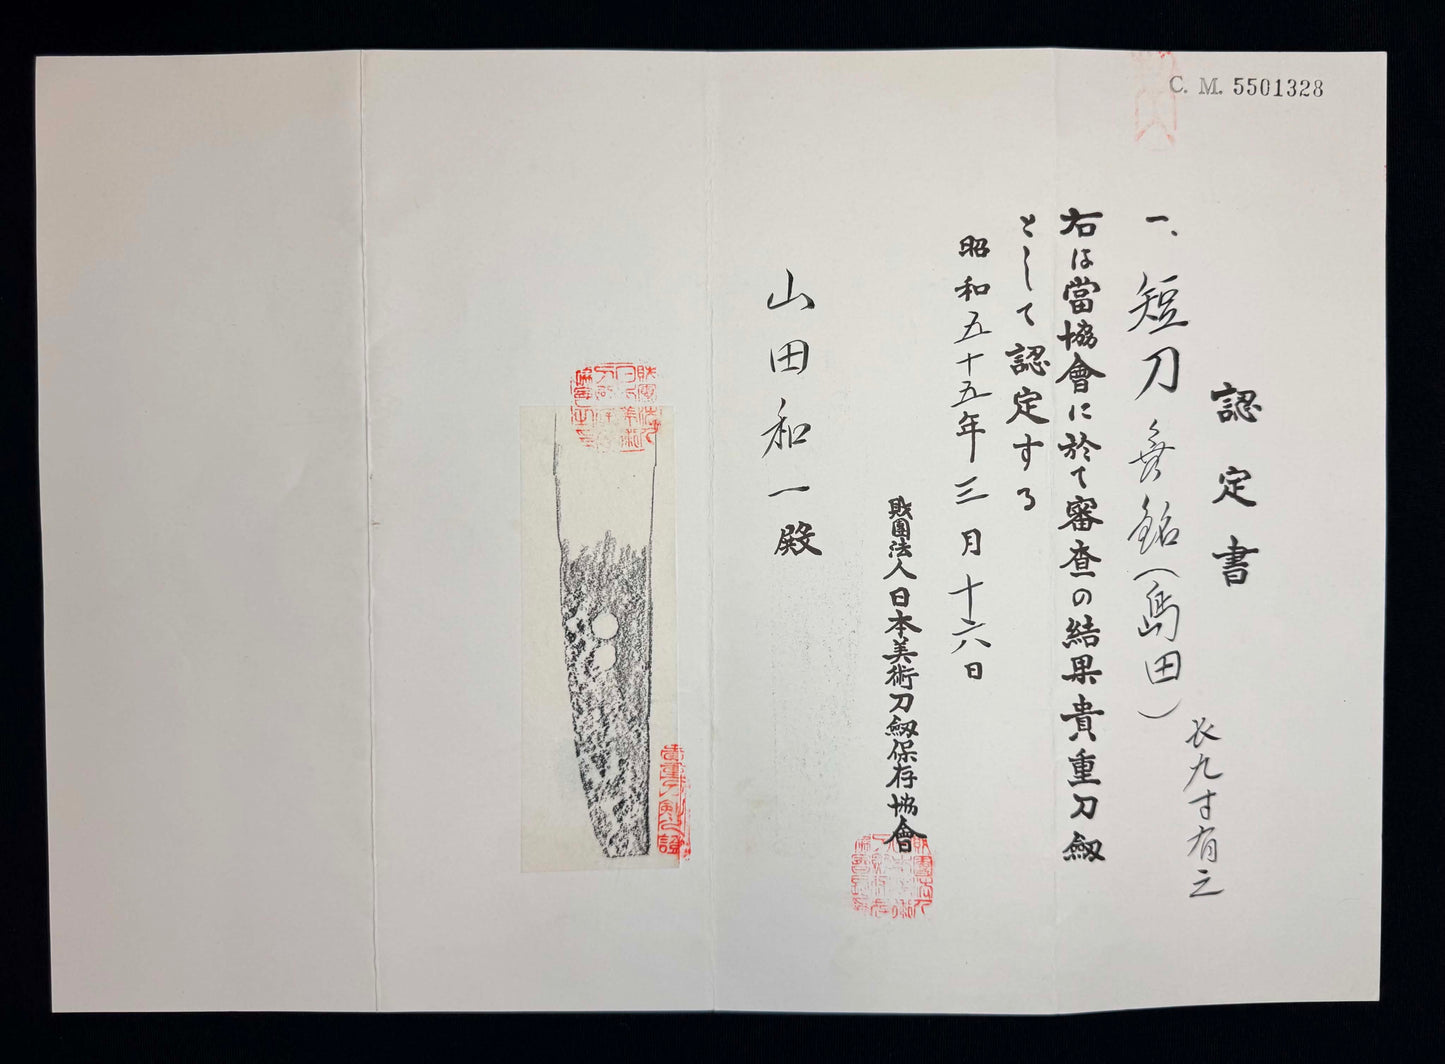 C. M. 5501328
認定書
一、短刀 無銘(島田)
長九寸有之
右は當協會に於て審査の結果貴重刀劔
として認定する
昭和五十五年三月十六日
財團法人日本美術刀劔保存協會
山田和一殿